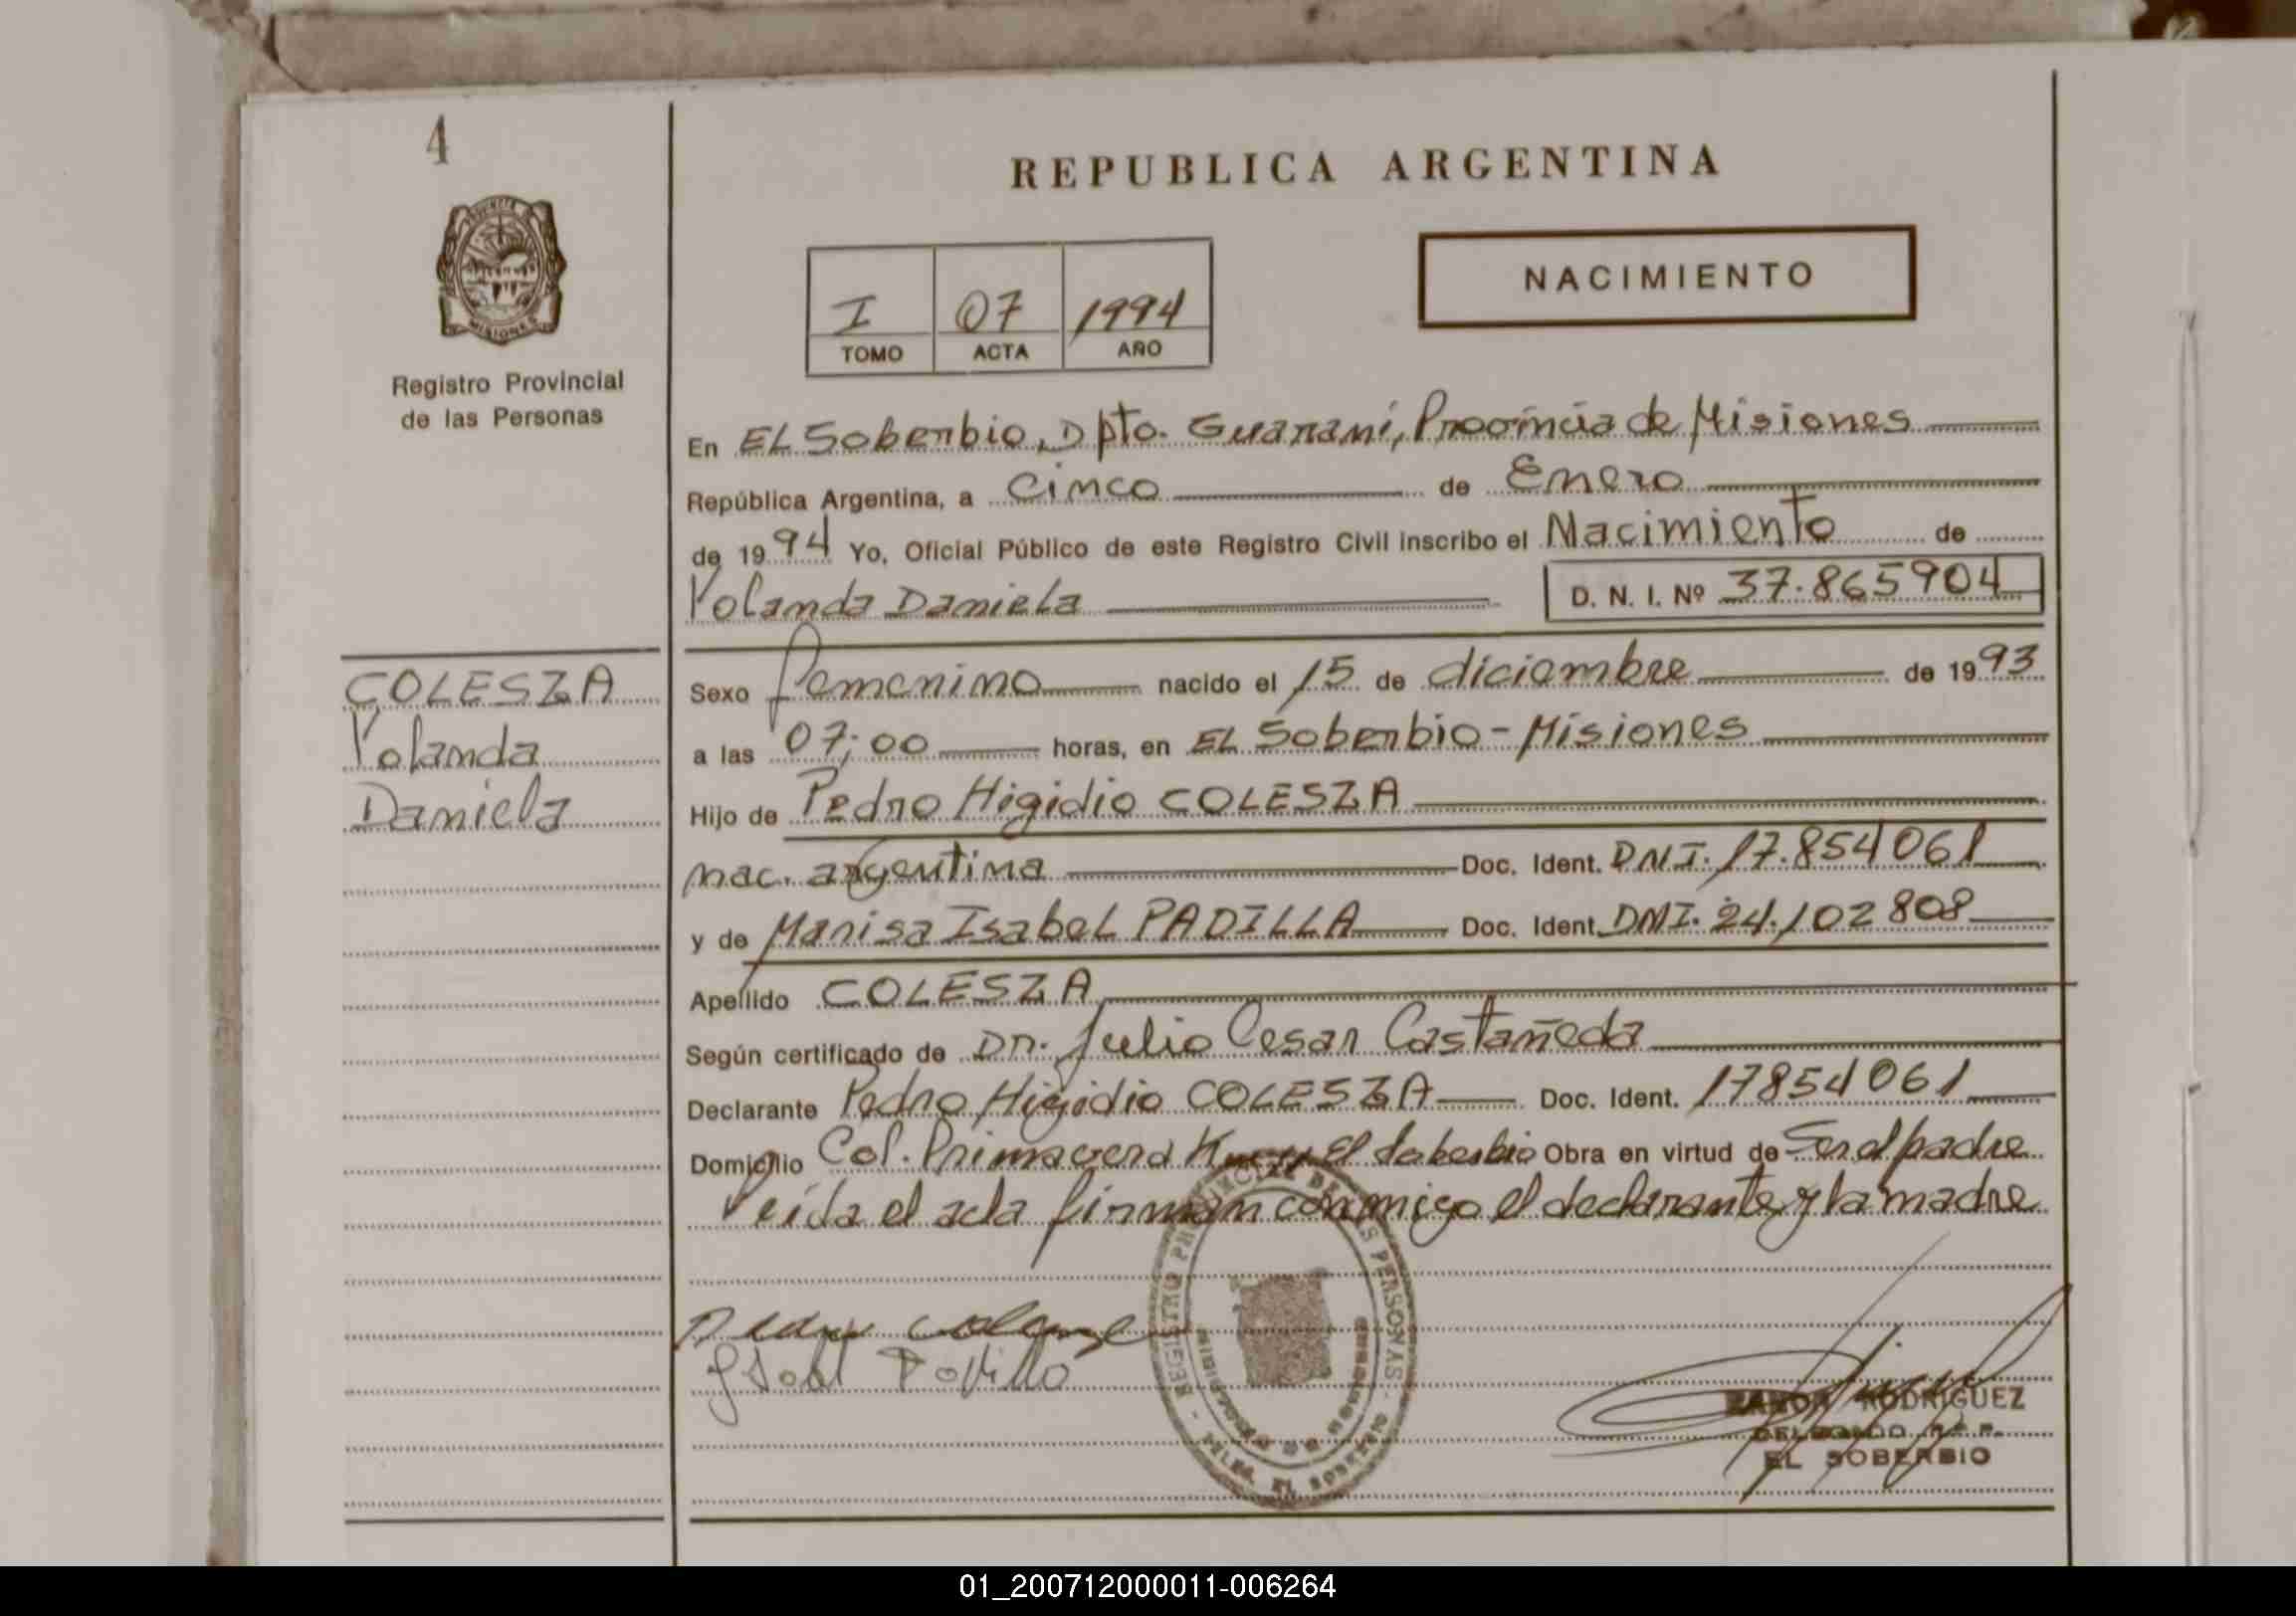 4
REPUBLICA ARGENTINA
PROVINCIA DE
MISIONES
Registro Provincial
de las Personas
NACIMIENTO
I 07 1994
TOMO ACTA AÑO
En El Soberbio, Dpto. Guaraní, Provincia de Misiones
República Argentina, a Cinco de Enero
de 1994 Yo, Oficial Público de este Registro Civil inscribo el Nacimiento de
Yolanda Daniela D. N. I. Nº 37.865904
COLESZA
Yolanda
Daniela
Sexo femenino nacido el 15 de diciembre de 1993
a las 07;00 horas, en El Soberbio - Misiones
Hijo de Pedro Higidio COLESZA
nac. argentina Doc. Ident. DNI. 17.854061
y de Marisa Isabel PADILLA Doc. Ident. DNI. 24.102808
Apellido COLESZA
Según certificado de Dr. Julio Cesar Castañeda
Declarante Pedro Higidio COLESZA Doc. Ident. 17854061
Domicilio Col. Primavera El Soberbio Obra en virtud de Ser el padre
Leída el acta firman conmigo el declarante y la madre
REGISTRO PROVINCIAL DE LAS PERSONAS
EL SOBERBIO
RODRIGUEZ
EL SOBERBIO
01_200712000011-006264